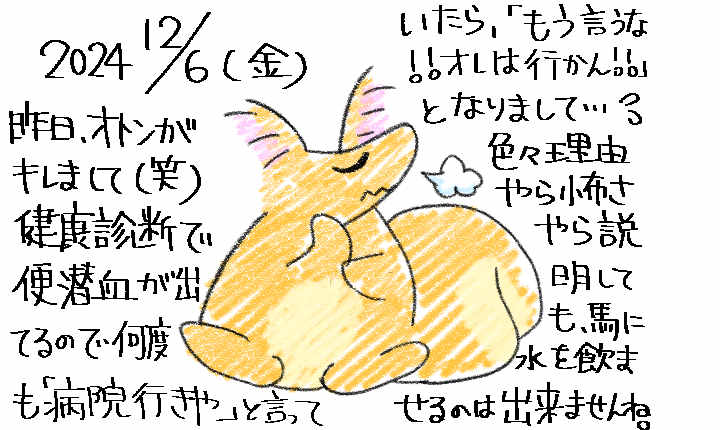 2024 12/6(金)
昨日、オトンが
キレまして(笑)
健康診断で
便潜血が出
てるので何度
も「病院行きや」と言って
いたら、「もう言うな
!!オレは行かん!!」
となりまして…。
色々理由
やら怖さ
やら説
明して
も、馬に
水を飲ま
せるのは出来ませんね。